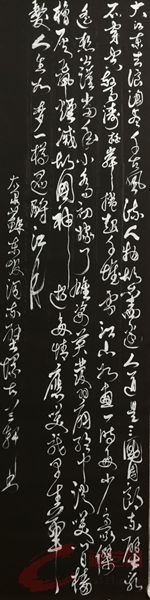 大江東去浪淘盡千古風流人物故壘西邊人道是三國周郎赤壁亂
石穿空驚濤拍岸捲起千堆雪江山如畫一時多少豪傑
遙想公瑾當年小喬初嫁了雄姿英發羽扇綸巾談笑間檣
櫓灰飛煙滅故國神遊多情應笑我早生華
髮人生如夢一樽還酹江月
蘇東坡詞赤壁懷古